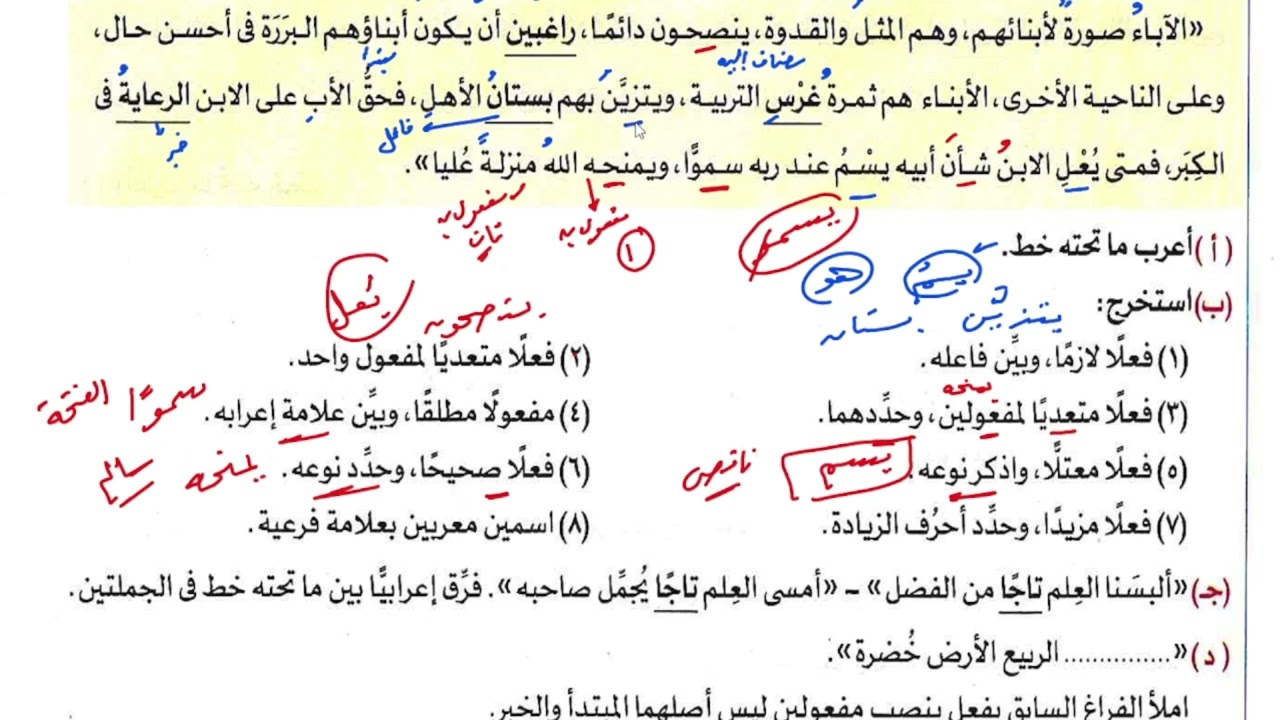 «الآباءُ صورةٌ لأبنائهم، وهم المثل والقدوة، ينصحون دائمًا، راغبين أن يكون أبناؤهم البَرَرَة فى أحسن حال،
مضاف إليه مبتدأ
وعلى الناحية الأخرى، الأبناء هم ثمرةُ غَرْسِ التربية، ويتزيَّنُ بهم بستانُ الأهلِ، فحقُّ الأبِ على الابن الرعايةُ فى
فاعل خبر
الكِبَر، فمتى يُعْلِ الابنُ شأنَ أبيه يسْمُ عند ربه سموًّا، ويمنحه اللهُ منزلةً عُليا».
مفعول به ١ مفعول به ثان
(أ) أعرب ما تحته خط.
يسمُ هو يسمو
(ب) استخرج:
يتزين بستان ينصحون يُعل
(١) فعلًا لازمًا، وبيِّن فاعله.
(٢) فعلًا متعديًا لمفعول واحد.
(٣) فعلًا متعديًا لمفعولين، وحدِّدهما. يمنحه
(٤) مفعولًا مطلقًا، وبيِّن علامة إعرابه. سموًّا الفتحة
(٥) فعلًا معتلًّا، واذكر نوعه. يسم ناقص
(٦) فعلًا صحيحًا، وحدِّد نوعه. يمنحه سالم
(٧) فعلًا مزيدًا، وحدِّد أحرُف الزيادة.
(٨) اسمين معربين بعلامة فرعية.
(جـ) «ألبسَنا العِلم تاجًا من الفضل» – «أمسى العِلم تاجًا يُجمِّل صاحبه». فرِّق إعرابيًّا بين ما تحته خط فى الجملتين.
(د) «............... الربيع الأرض خُضرة».
املأ الفراغ السابق بفعل ينصب مفعولين ليس أصلهما المبتدأ والخبر.